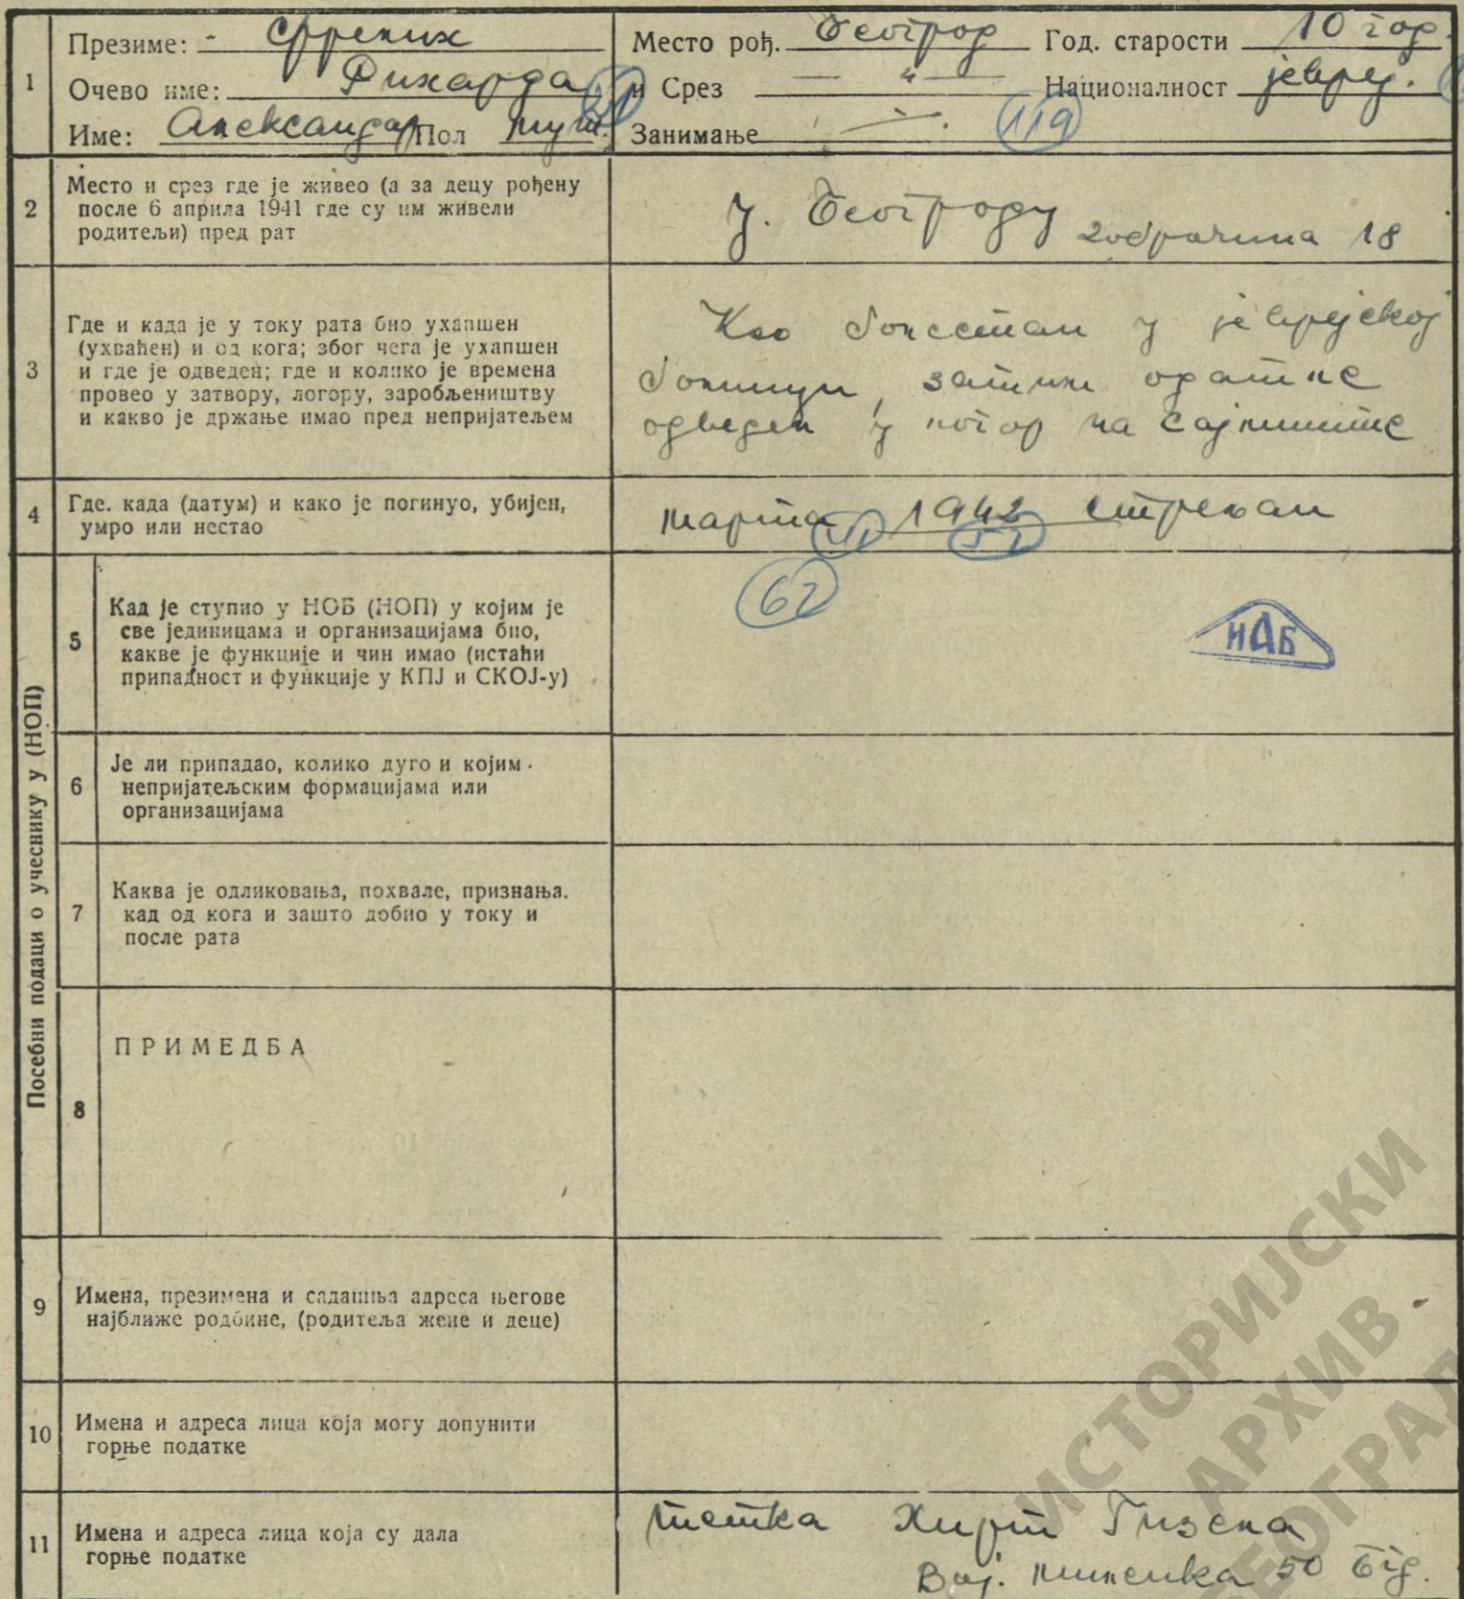 1
Презиме: - Фрелих
Очево име: Рихарда
Име: Александар Пол муш.
Место рођ. Београд Год. старости 10 год.
и Срез — " — Националност јеврej.
Занимање — . 119
2
Место и срез где је живео (а за децу рођену
после 6 априла 1941 где су им живели
родитељи) пред рат
У. Београду Добрачина 18
3
Где и када је у току рата био ухапшен
(ухваћен) и од кога; због чега је ухапшен
и где је одведен; где и колико је времена
провео у затвору, логору, заробљеништву
и какво је држање имао пред непријатељем
Као болестан у јеврејској
болници, затим одатле
одведен у логор на Сајмиште
4
Где. када (датум) и како је погинуо, убијен,
умро или нестао
марта 1942 стрељан
51
62
Посебни подаци о учеснику у (НОП)
5
Кад је ступио у НОБ (НОП) у којим је
све јединицама и организацијама био,
какве је функције и чин имао (истаћи
припадност и функције у КПЈ и СКОЈ-у)
ИАБ
6
Је ли припадао, колико дуго и којим
непријатељским формацијама или
организацијама
7
Каква је одликовања, похвале, признања.
кад од кога и зашто добио у току и
после рата
8
ПРИМЕДБА
9
Имена, презимена и садашња адреса његове
најближе родбине, (родитеља жене и деце)
10
Имена и адреса лица која могу допунити
горње податке
11
Имена и адреса лица која су дала
горње податке
тетка Хирт Гизела
Вој. Миленка 50 Бгд.
ИСТОРИЈСКИ
АРХИВ
БЕОГРАД